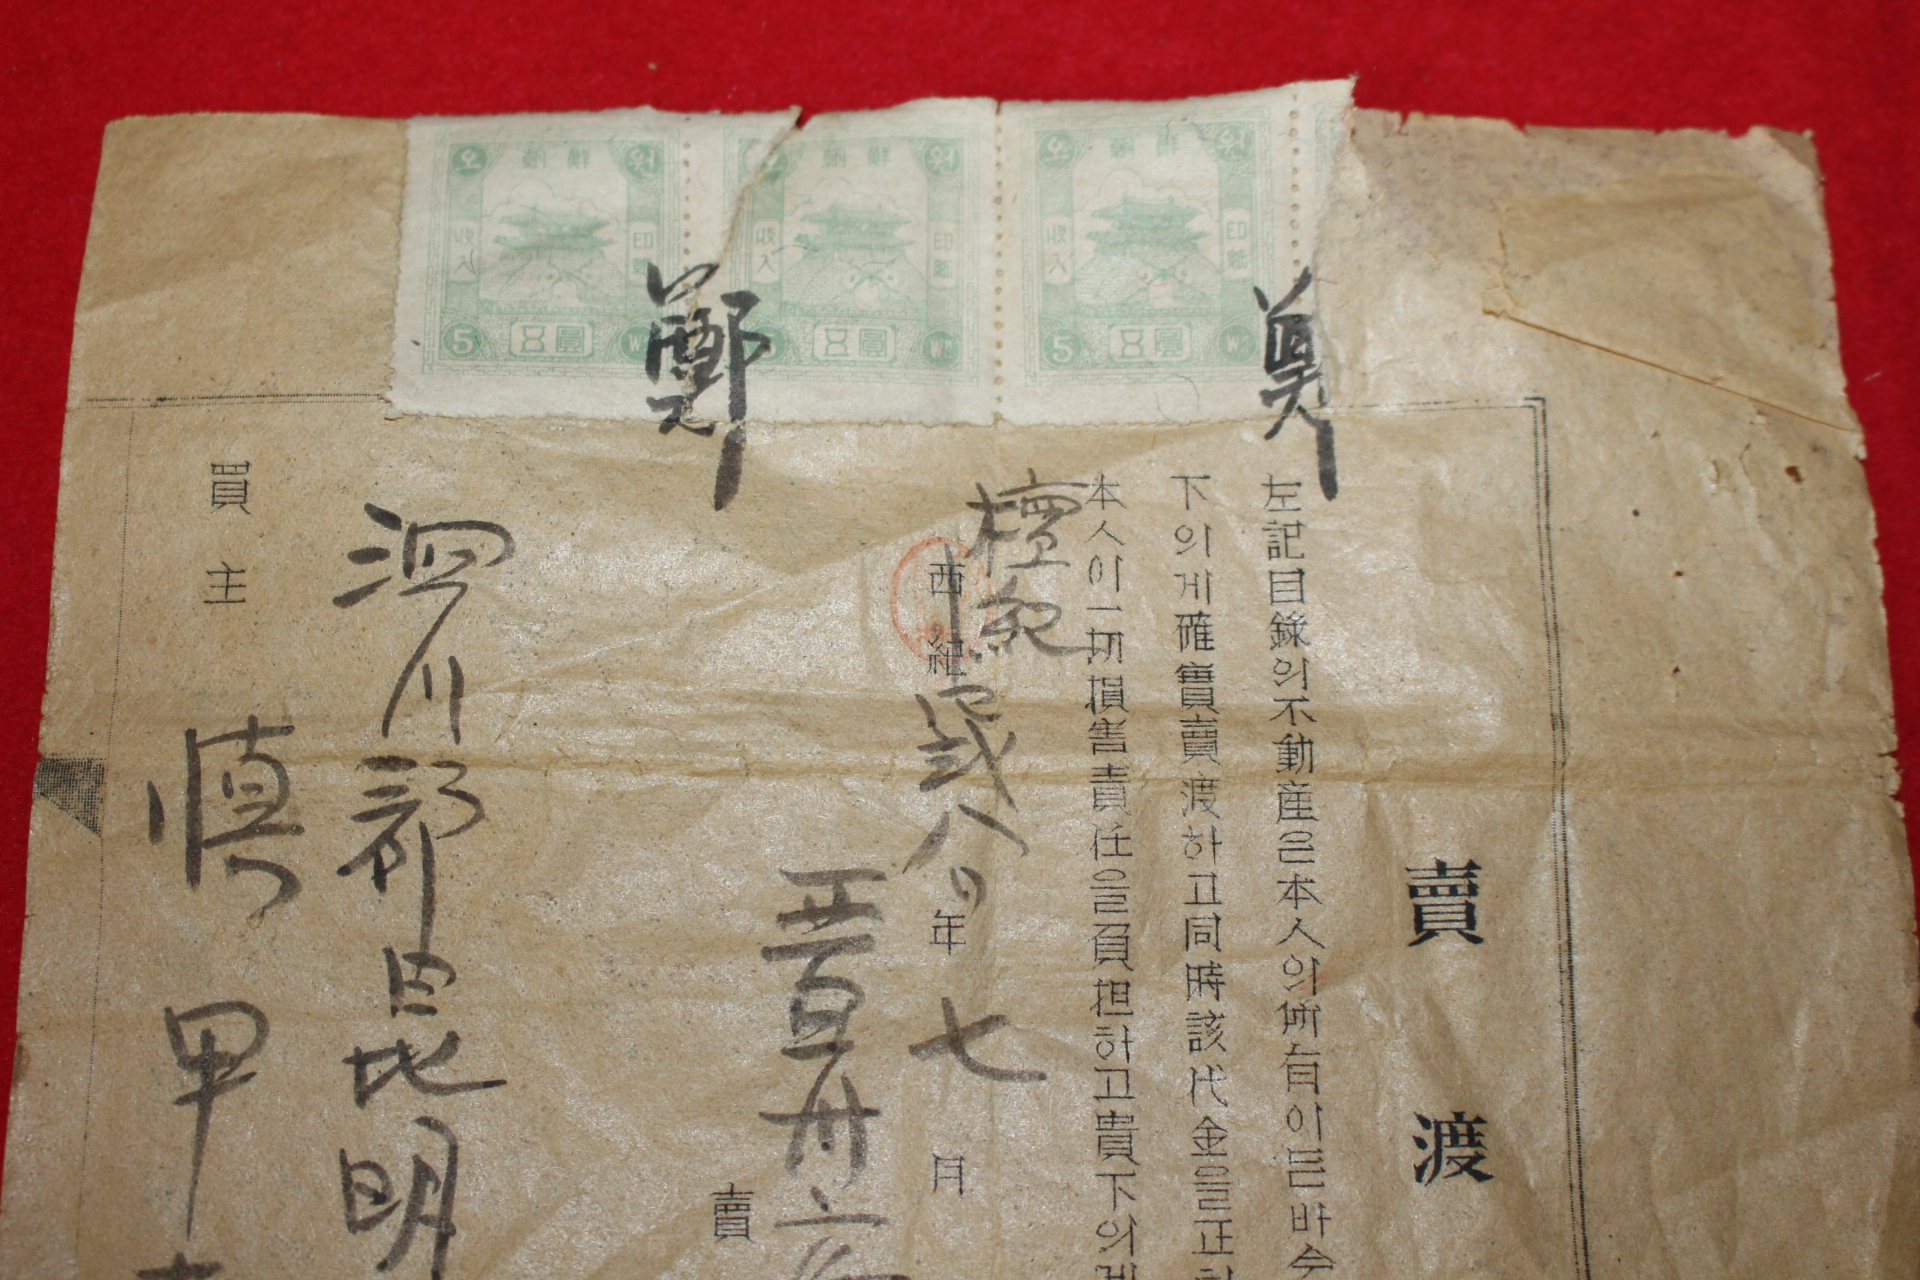 오 朝鮮 원
收入 印紙
5 五圓 Wn
오 朝鮮 원
收入 印紙
五圓 Wn
오 朝鮮 원
收入 印紙
5 五圓 Wn
鄭
鄭
賣渡
左記目錄의不動産은本人의所有이든바今
下의게確實賣渡하고同時該代金을正히
本人이一切損害責任을負担하고貴下의게
檀紀
西紀 年 七 月
賣
泗川郡昆明
買主
愼甲